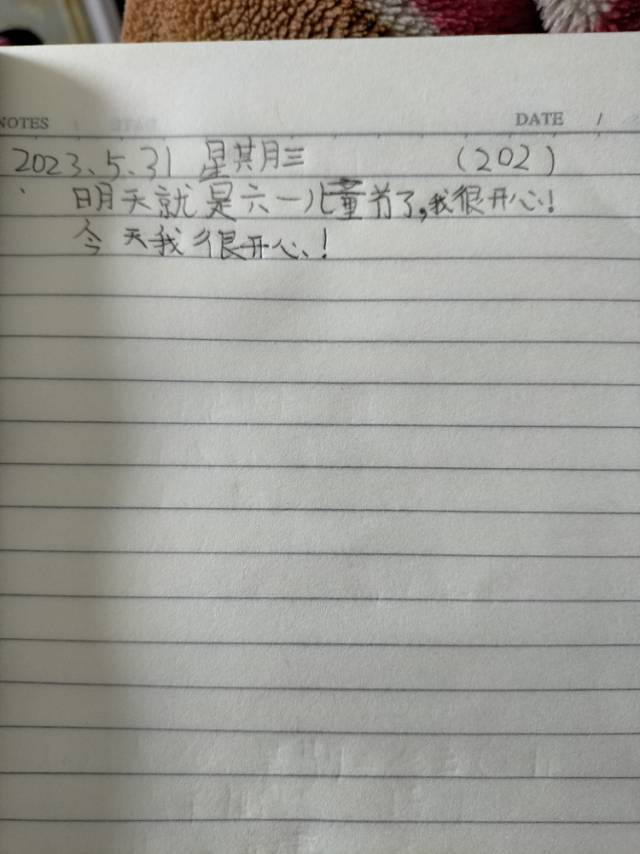 NOTES DATE /
2023、5、31 星其月三 (202)
明天就是六一儿童节了,我很开心!
今天我很开心!